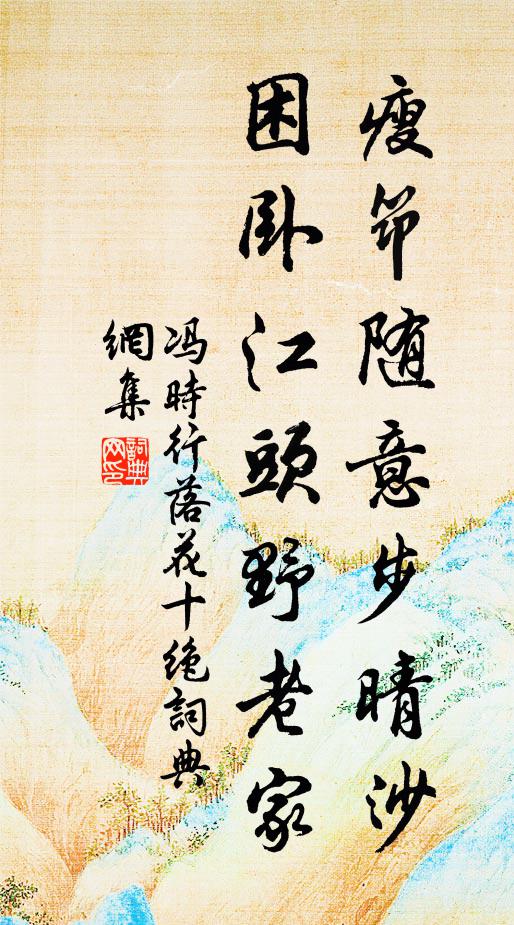 瘦筇随意步晴沙
困卧江頭野老家
冯時行落花十绝詞典
網集
詞典网印